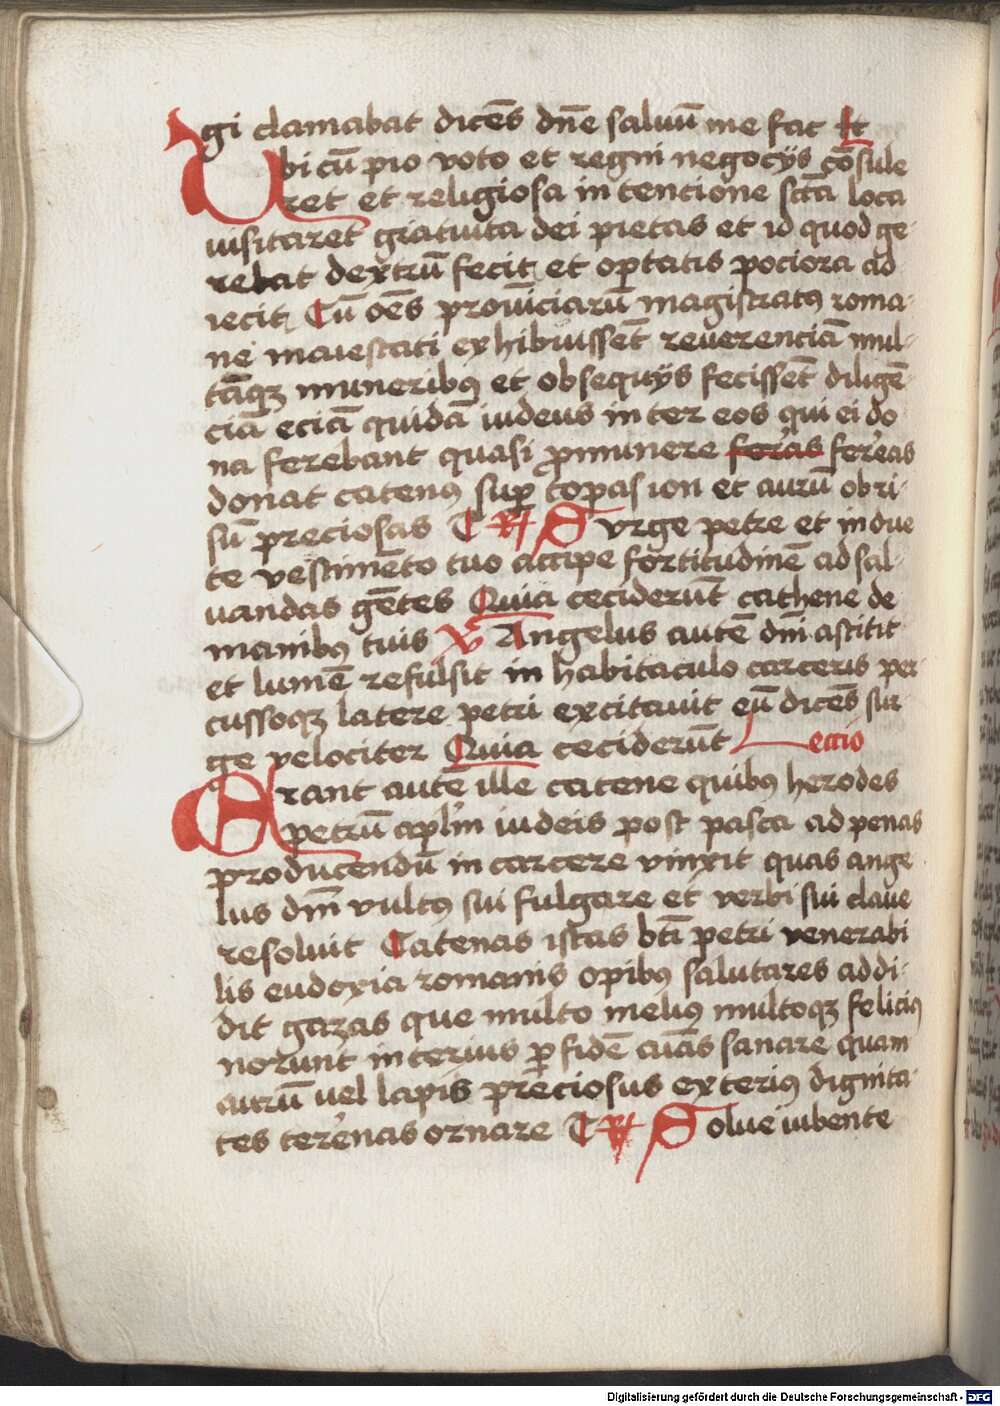 gi clamabat dicēs dn̄e saluū me fac Lc̄
Ubi cū pio voto et regni negocijs cōsule
ret et religiosa in tencione sctā loca
uisitaret gratuita dei pietas et id quod ge-
rebat dextrū fecit et optatis pociora ad
iecit Cū oēs prouīciarū magistratꝯ roma-
ne maiestati exhibuissēt reuerenciā mul-
tāqꝫ muneribꝯ et obsequijs fecissēt diligē-
ciā eciā quidā iudeus in ter eos qui ei do
na ferebant quasi ꝓ munere feras ferreas
donat catenꝯ suꝑ copas ion et aurū obri-
sū preciosas C R̷ Surge petre et indue
te vestimēto tuo accipe fortitudinē ad sal-
uandas gētes Quia ceciderūt cathene de
manibꝯ tuis V̷ Angelus autē dn̄i astitit
et lumē refulsit in habitaculo carceris per-
cussoqꝫ latere petri excitauit eū dicēs sur
ge velociter Quia ceciderūt Lectio
Erant autē ille catene quibꝯ herodes
petrū apl̄m iudeis post pasca ad penas
producendū in carcere vinxit quas ange
lus dn̄i vultꝯ sui fulgare et verbi sui claue
resoluit Catenas istas bt̄i petri venerabi
lis eudoxia romanis opibꝯ salutares addi-
dit gazas que multo meliꝯ multoqꝫ feliciꝯ
norunt interius ꝑ fidē aīas sanare quam
aurū uel lapis preciosus exteriꝯ dignita-
tes terrenas ornare C R̷ Solue iubente
Digitalisierung gefördert durch die Deutsche Forschungsgemeinschaft - DFG